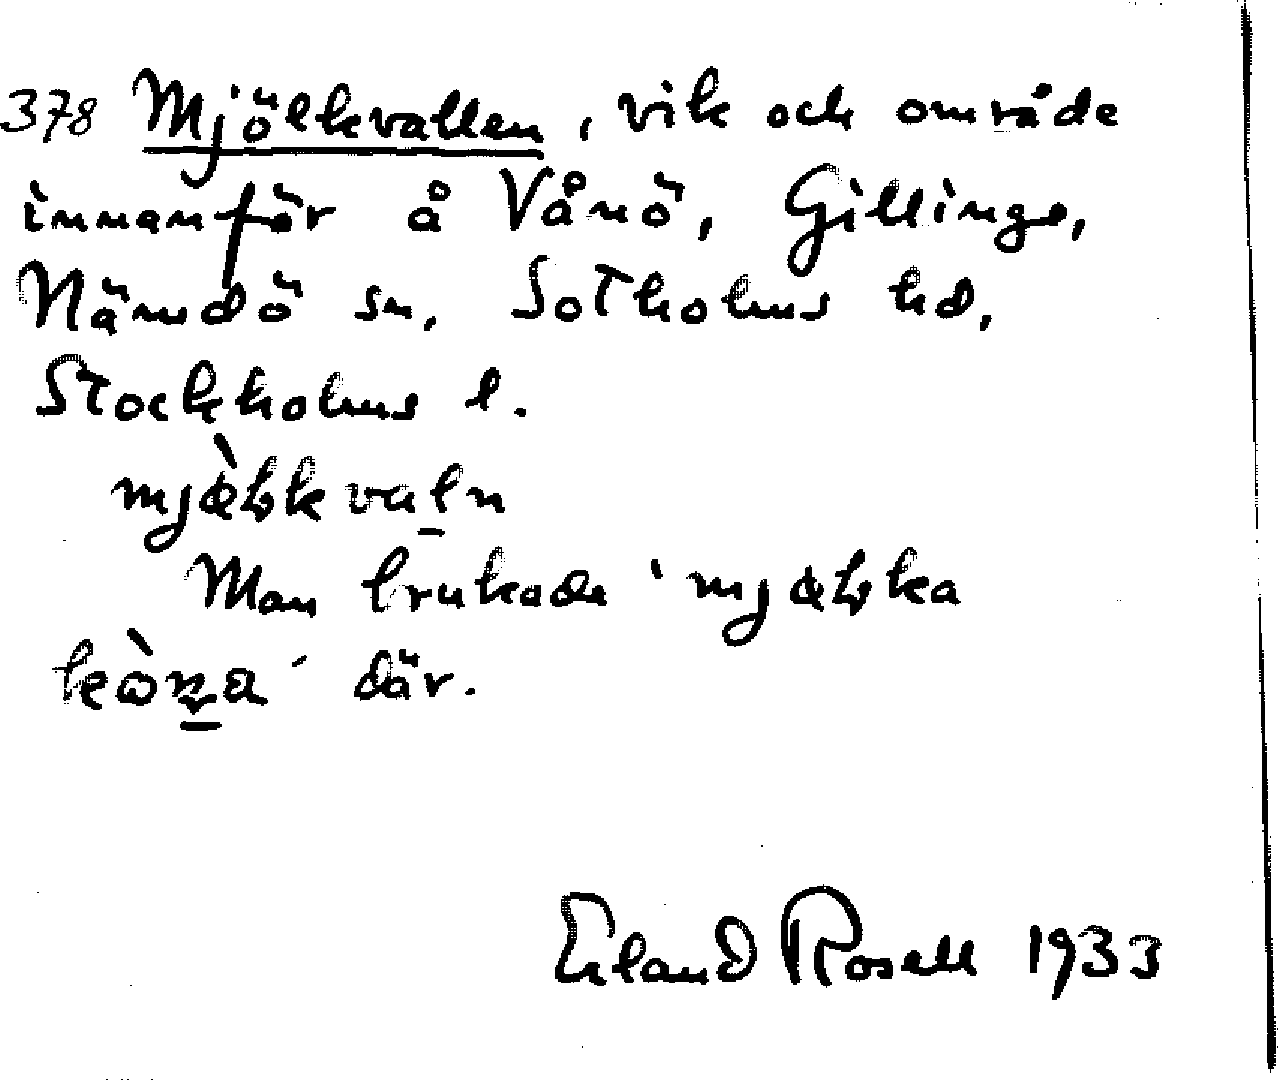 378 Mjölkvallen, vik och område
innanför å Vånö, Gillinge,
Nämdö sn, Sotholms hd,
Stockholms l.
Man brukade
där.
Erland Rosell 1933